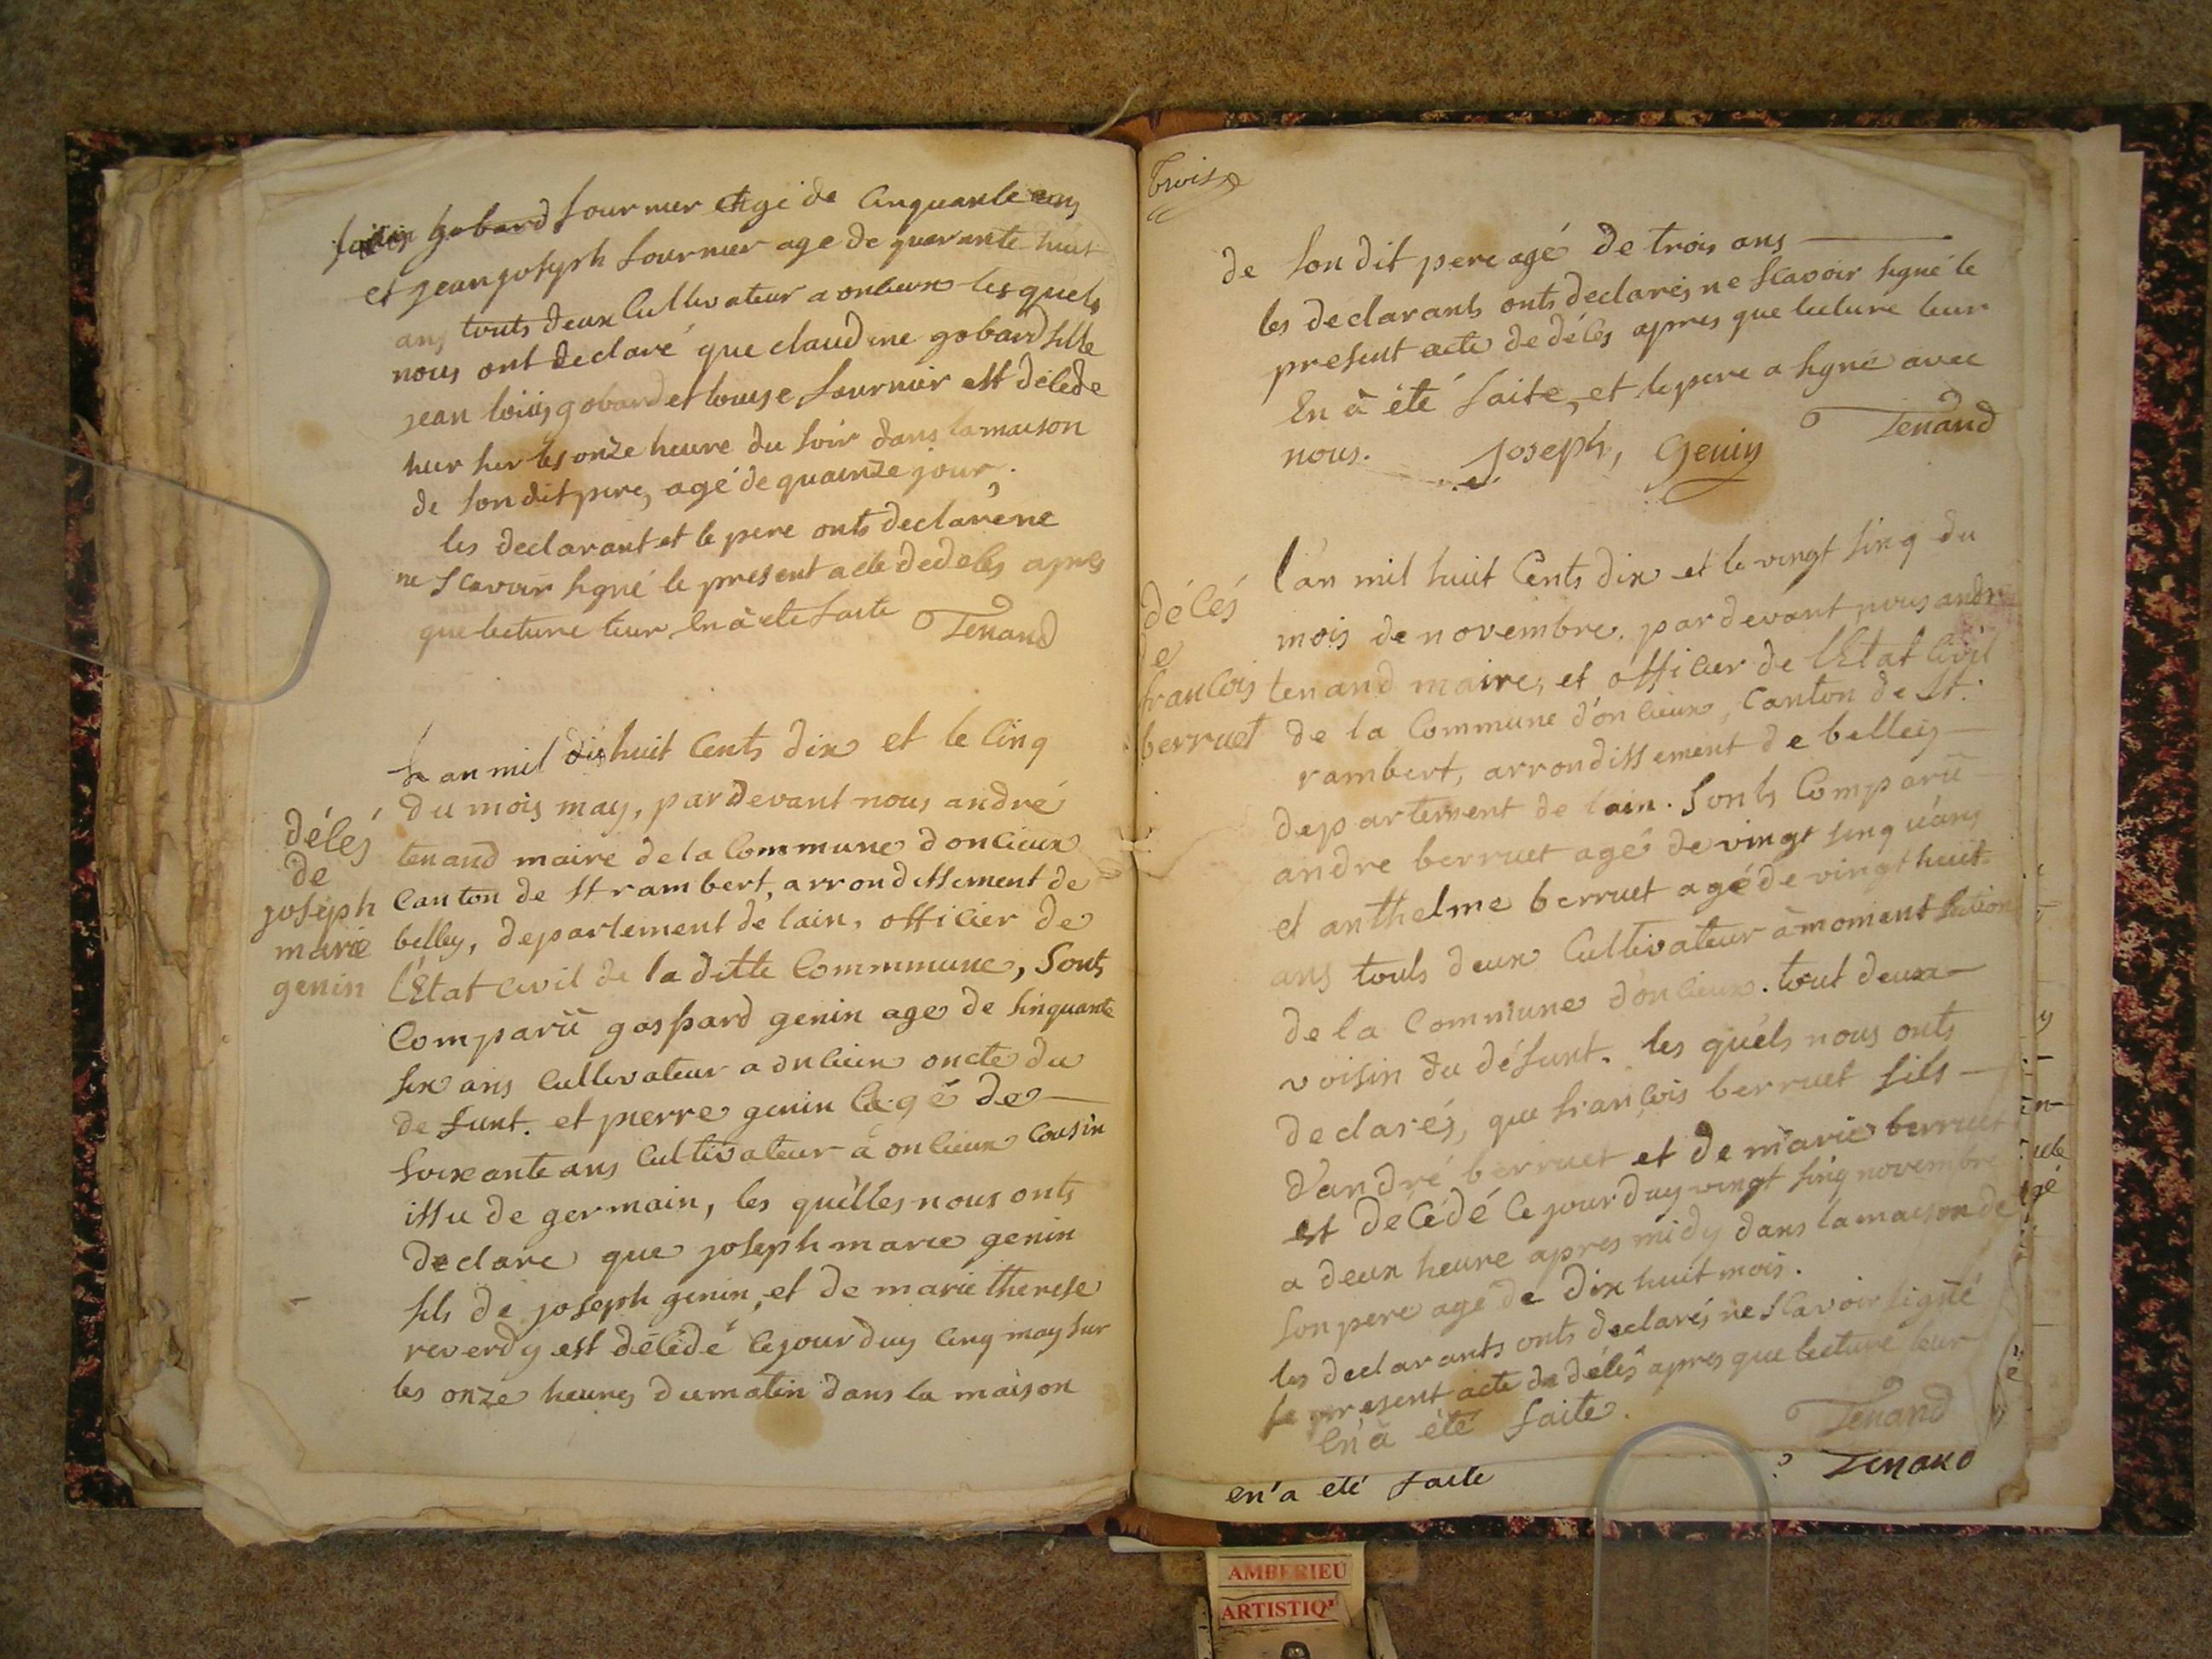 gobard fournier agé de Cinquante ans
et jean joseph fournier age de quarante huit
ans touts deux Cultivateur a onlieux les quels
nous ont declaré que claudine gobard fille
jean loüis gobard et louise fournier est décédé
hier sur les onze heure du soir dans la maison
de son dit pere, agé de quainze jour.
les declarant et le pere onts declaré ne
ne scavoir signé le present acte de décés apres
que lecture leur en à eté faite Tenand
Lan mil huit Cents dix et le Cinq
du mois may, pardevant nous andré
tenand maire de la Commune donlieux
Canton de st rambert, arrondissement de
belley, departement de lain, officier de
l'Etat civil de la ditte Commmune, Sonts
Comparü gaspard genin age de sinquante
six ans Cultivateur a onlieux oncle du
defunt. et pierre genin agé de
soixante ans Cultivateur à onlieux Cousin
issu de germain, les quélles nous onts
declare que joseph marie genin
fils de joseph genin, et de marie therese
reverdy est décédé Cejourduy cinq may sur
les onze heures du matin dans la maison
décés
de
joseph
marie
genin
trois
de son dit pere agé de trois ans
les declarants onts declarés ne scavoir signé le
present acte de décés apres que lecture leur
en à été faite, et le pere a signé avec
nous. Joseph, Genin Tenand
décés
de
francois
berruet
l'an mil huit Cents dix et le vingt sinq du
mois de novembre, pardevant nous andré
tenand maire, et officier de l'Etat Civil
de la Commune d'onlieux, Canton de st.
rambert, arrondissement de belley
departement de lain. Sonts Comparü
andre berruet agé de vingt sinq ans
et anthelme berruet agé de vingt huit
ans touts deux Cultivateur à moment section
de la Commune d'onlieux. tout deux
voisin du défunt. les quéls nous onts
declarés, que françois berruet fils
d'andré berruet et de marie berruet
est décédé Cejourduy vingt sinq novembre
a deux heure apres midy dans la maison de
son pere agé de dix huit mois.
les declarants onts declarés ne scavoir signé
le present acte de décés apres que lecture leur
en'à été faite. Tenand
en'a eté faite Tenand
AMBERIEU
ARTISTIQ